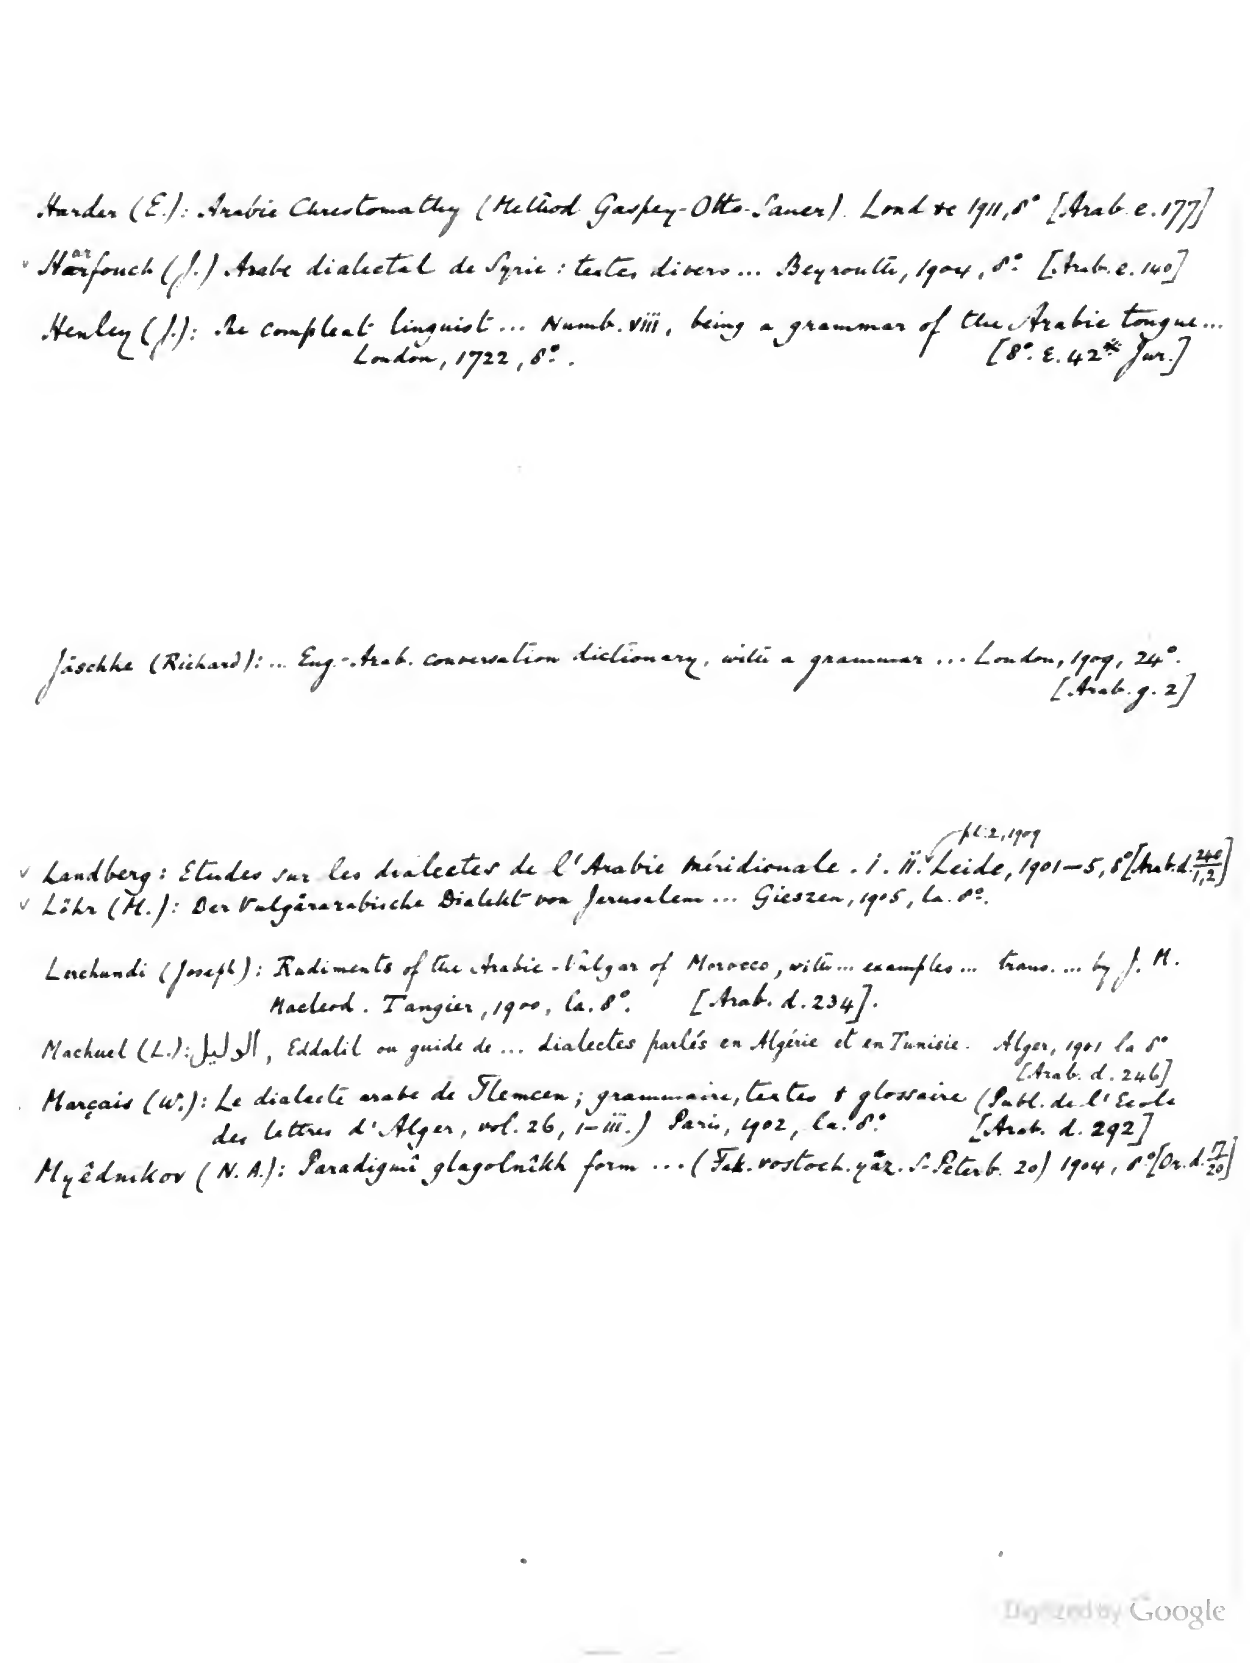 Harder (E.): Arabic Chrestomathy (Method Gaspey-Otto-Sauer). Lond &c 1911, 8° [Arab. e. 177]
ᵛ Harfouch (J.) Arabe dialectal de Syrie : textes divers ... Beyrouth, 1904, 8°. [Arab. e. 140]
Henley (J.): The compleat linguist ... Numb. viii, being a grammar of the Arabic tongue ...
London, 1722, 8°. [8°. E. 42* Jur.]
Jäschke (Richard): ... Eng.-Arab. conversation dictionary, with a grammar ... London, 1909, 24°.
[Arab. g. 2]
pt. 2, 1909
ᵛ Landberg : Etudes sur les dialectes de l'Arabie méridionale . i . ii. Leide, 1901–5, 8° [Arab. d. 240/1,2]
ᵛ Löhr (M.): Der Vulgärarabische Dialekt von Jerusalem ... Gieszen, 1905, la. 8°.
Lerchundi (Joseph): Rudiments of the Arabic-Vulgar of Morocco, with ... examples ... trans. ... by J. M.
Macleod. Tangier, 1900, la. 8°. [Arab. d. 234].
Machuel (L.): الدليل, Eddalil ou guide de ... dialectes parlés en Algérie et en Tunisie. Alger, 1901 la 8°
[Arab. d. 246]
Marçais (W.): Le dialecte arabe de Tlemcen ; grammaire, textes & glossaire (Publ. de l'Ecole
des lettres d'Alger, vol. 26, i–iii.) Paris, 1902, la. 8°. [Arab. d. 292]
Myêdnikov (N. A.): Paradigmî glagolnîkh form ... (Fak. vostoch. yaz. S. Peterb. 20) 1904, 8° [Or. d. 7/20]
Digitized by Google